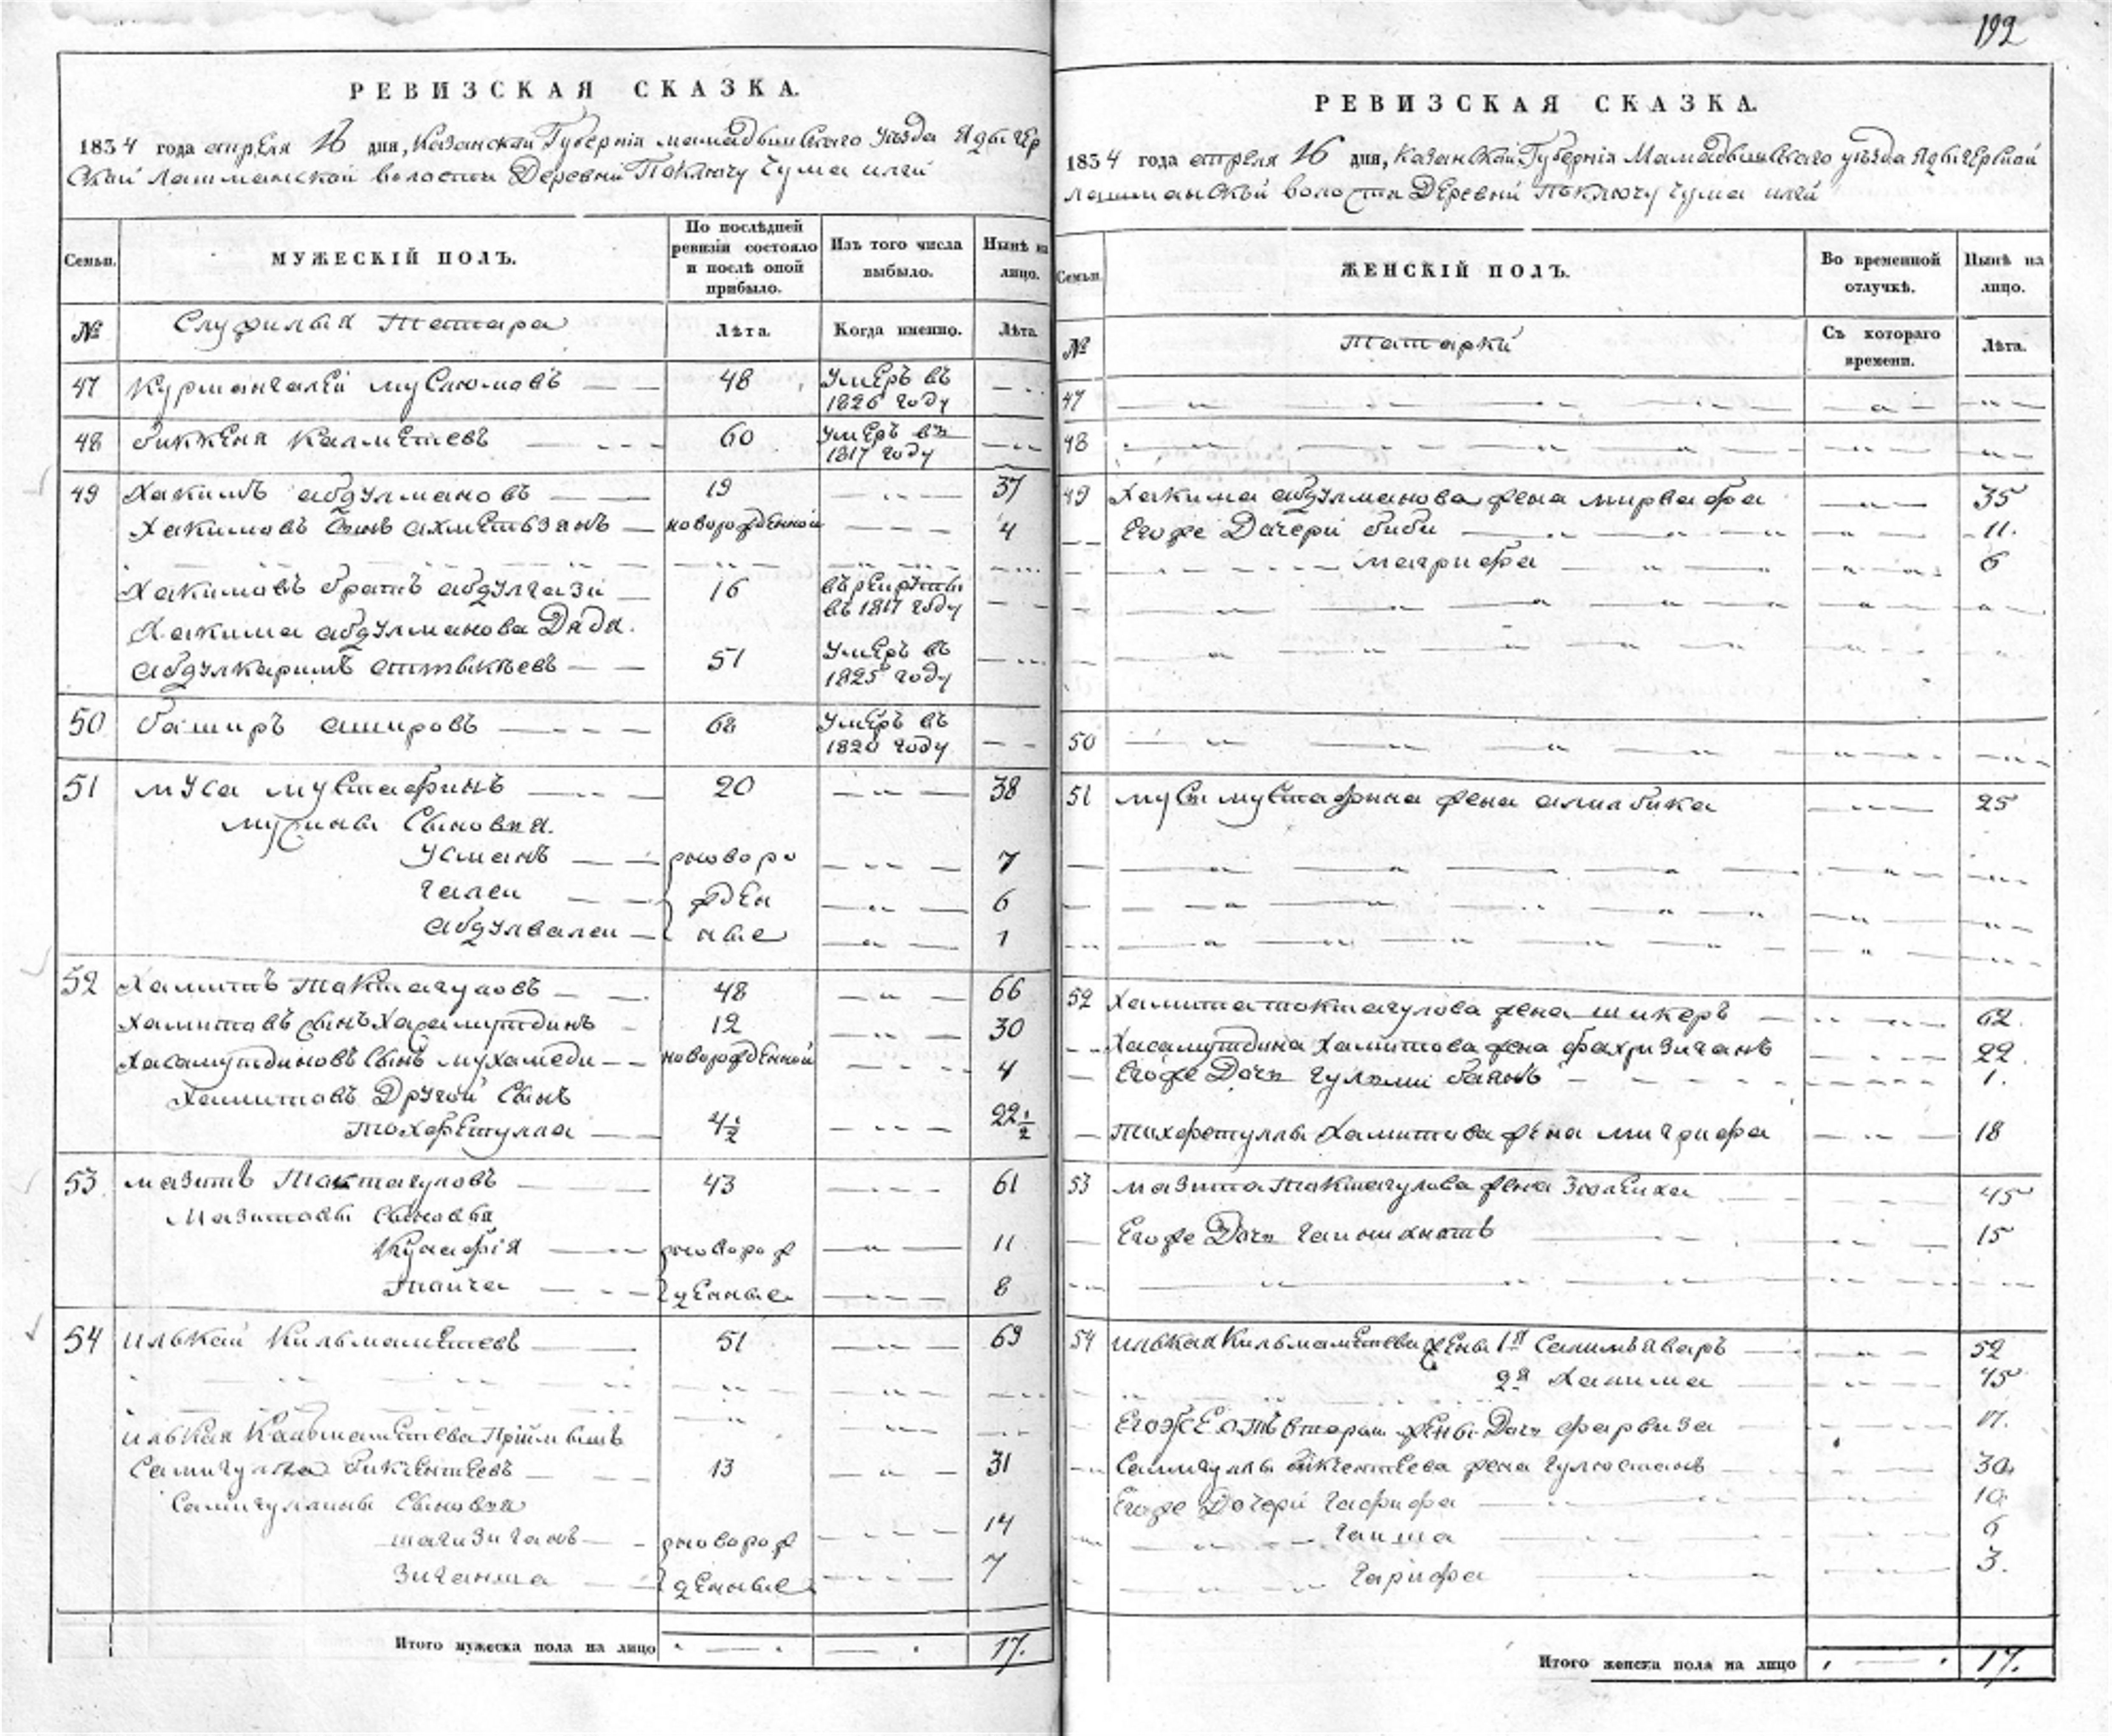 192
РЕВИЗСКАЯ СКАЗКА.
1834 года апреля 16 дня, Казанской Губернiи мамадышскаго уѣзда Ядыгер
ской Лашманской волости Деревни Поключу Чума илги
Семьи.
МУЖЕСКІЙ ПОЛЪ.
По послѣдней ревизіи состояло и послѣ оной прибыло.
Изъ того числа выбыло.
Нынѣ на лицо.
№
Служилыя Татара
Лѣта.
Когда именно.
Лѣта.
47 Курмангалей муслюмовъ 48 Умеръ въ 1826 году
48 биккеня калметевъ 60 Умеръ въ 1817 году
49 Хакимъ абдулмановъ 19 37
Хакимовъ сынъ ахметьзянъ новорожденной 4
Хакимовъ братъ абдулгази 16 въ рекруты въ 1817 году
Хакима абдулманова Дядя.
абдулкаримъ 51 Умеръ въ 1825 году
50 баширъ амировъ 68 Умеръ въ 1820 году
51 муса мустафинъ 20 38
мусины сыновья.
Усманъ новоро 7
галеи жден 6
абдулвалеи ные 1
52 Хамитъ Токтагуловъ 48 66
Хамитовъ сынъ Хасамутдинъ 12 30
Хасамутдиновъ сынъ мухамеди новорожденной 4
Хамитовъ Другой сынъ
тохфетулла 4½ 22½
53 мазитъ Токтагуловъ 43 61
Мазитовы сыновья
новорож 11
денные 8
54 илькай Кильмаметевъ 51 69
илькая Кильмаметева Прiимышъ
Самигулла бикчентеевъ 13 31
Самигуллины сыновья
шагизиганъ новорож 14
Зиганша денные 7
Итого мужеска пола на лицо 17.
РЕВИЗСКАЯ СКАЗКА.
1834 года апреля 16 дня, Казанской Губернiи Мамадышскаго уѣзда Ядыгерской
лашманской волости Деревни Поключу Чума илги
Семьи.
ЖЕНСКІЙ ПОЛЪ.
Во временной отлучкѣ.
Нынѣ на лицо.
№
татарки
Съ котораго времени.
Лѣта.
47
48
49 Хакима абдулманова жена мирвафа 35
Егоже Дочери биби 11.
магрифа 6
50
51 мусы мустафина жена 25
52 Хамита токтагулова жена шикеръ 62.
Хасамутдина Хамитова жена фахризиганъ 22.
Егоже Дочь баянъ 1.
Тохфетуллы Хамитова жена 18
53 мазита токтагулова жена Зюлеиха 45
Егоже Дочь 15
54 илькая Кильмаметева жены 1я 52
2я Хамима 45
Егоже отъ второй жены Дочь фарвиза 17.
Самигуллы бикчентеева жена гулюстанъ 30.
Егоже Дочери гафифа 10.
гаиша 6
гарифа 3.
Итого женска пола на лицо 17.